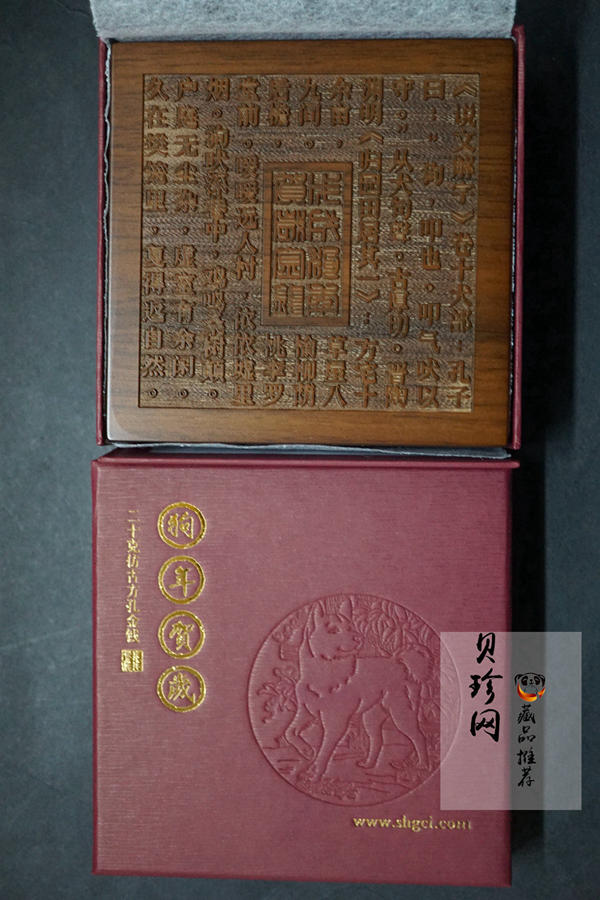 《说文解字》卷十犬部：孔子
曰：“狗，叩也。叩气吠以
守。”从犬句声。古厚切。晋陶
渊明《归园田居其一》：方宅十
余亩，草屋八
九间。榆柳荫
后檐，桃李罗
堂前。暧暧远人村，依依墟里
烟。狗吠深巷中，鸡鸣桑树颠。
户庭无尘杂，虚室有余闲。
久在樊笼里，复得返自然。
狗年贺歲
二十克仿古方孔金钱
www.shgci.com
贝珍网
藏品推荐